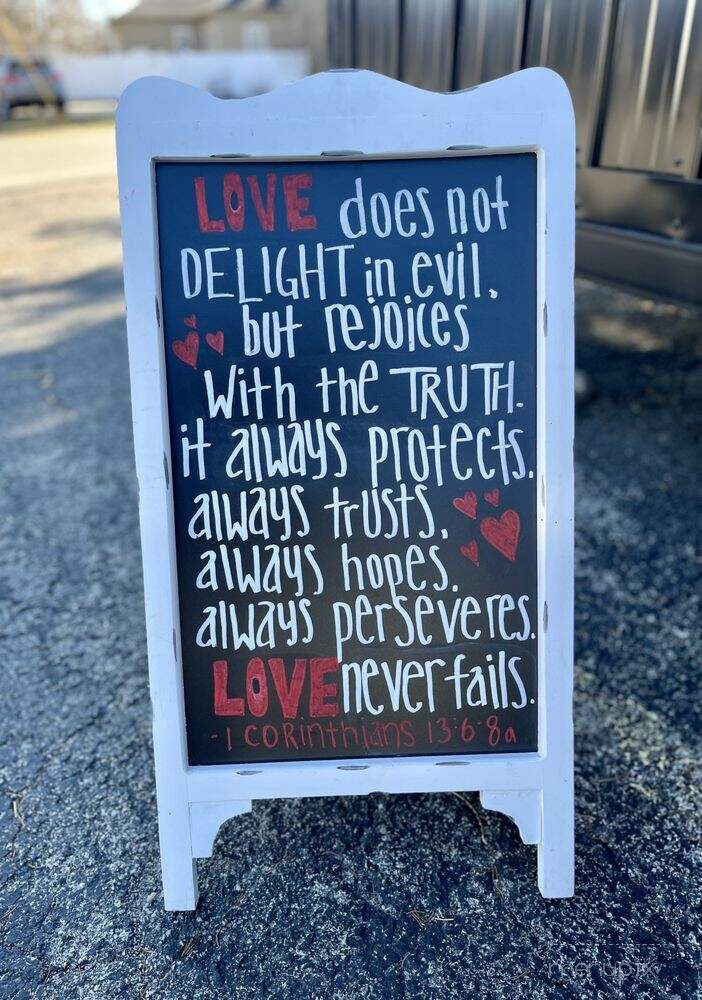 LOVE does not
DELIGHT in evil,
but rejoices
with the TRUTH.
it always protects.
always trusts,
always hopes,
always perseveres.
LOVE never fails.
-1 CORinthians 13:6-8a